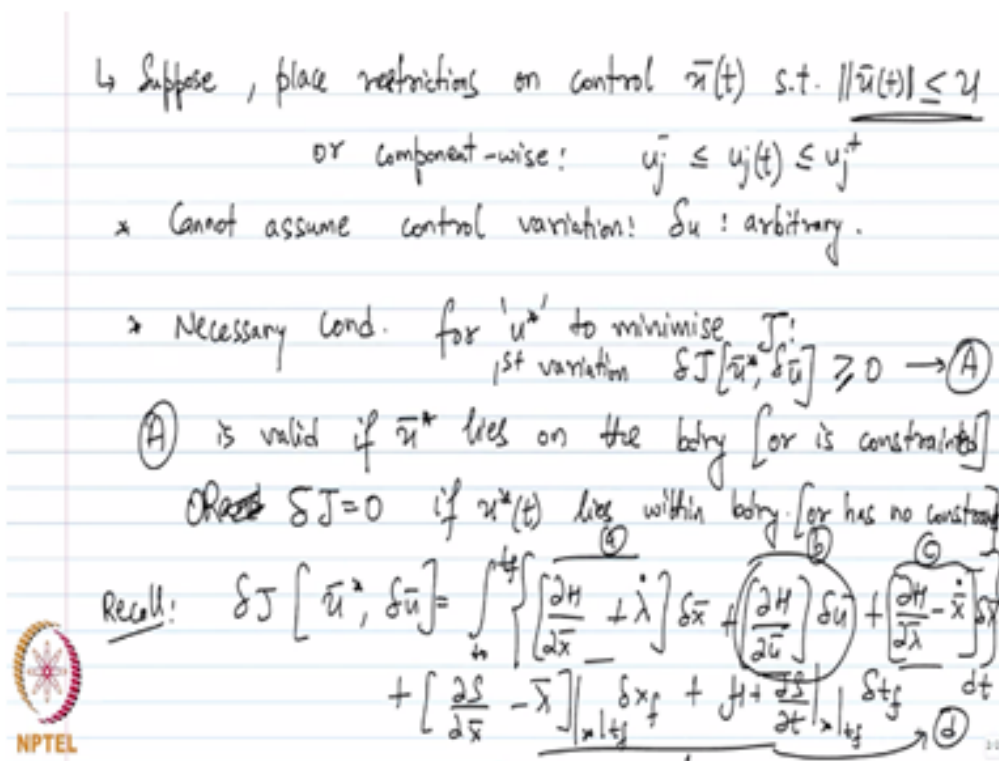 ↳ Suppose, place restrictions on control ū(t) s.t. ||ū(t)|| ≤ U
or component-wise: uj⁻ ≤ uj(t) ≤ uj⁺
* Cannot assume control variation: δu : arbitrary.
* Necessary Cond. for 'u*' to minimise J:
1st variation δJ[ū*, δū] ≥ 0 → (A)
(A) is valid if ū* lies on the bdry [or is constrained]
OR δJ=0 if u*(t) lies within bdry. [or has no constraint]
(a) (b) (c)
Recall: δJ[ū*, δū] = ∫_{t0}^{tf} { [∂H/∂x̄ + λ̇] δx̄ + [∂H/∂ū] δū + [∂H/∂λ̄ - ẋ̄] δλ̄ } dt
+ [∂S/∂x̄ - λ̄]|*|tf δxf + [H + ∂S/∂t]|*|tf δtf → (d)
NPTEL